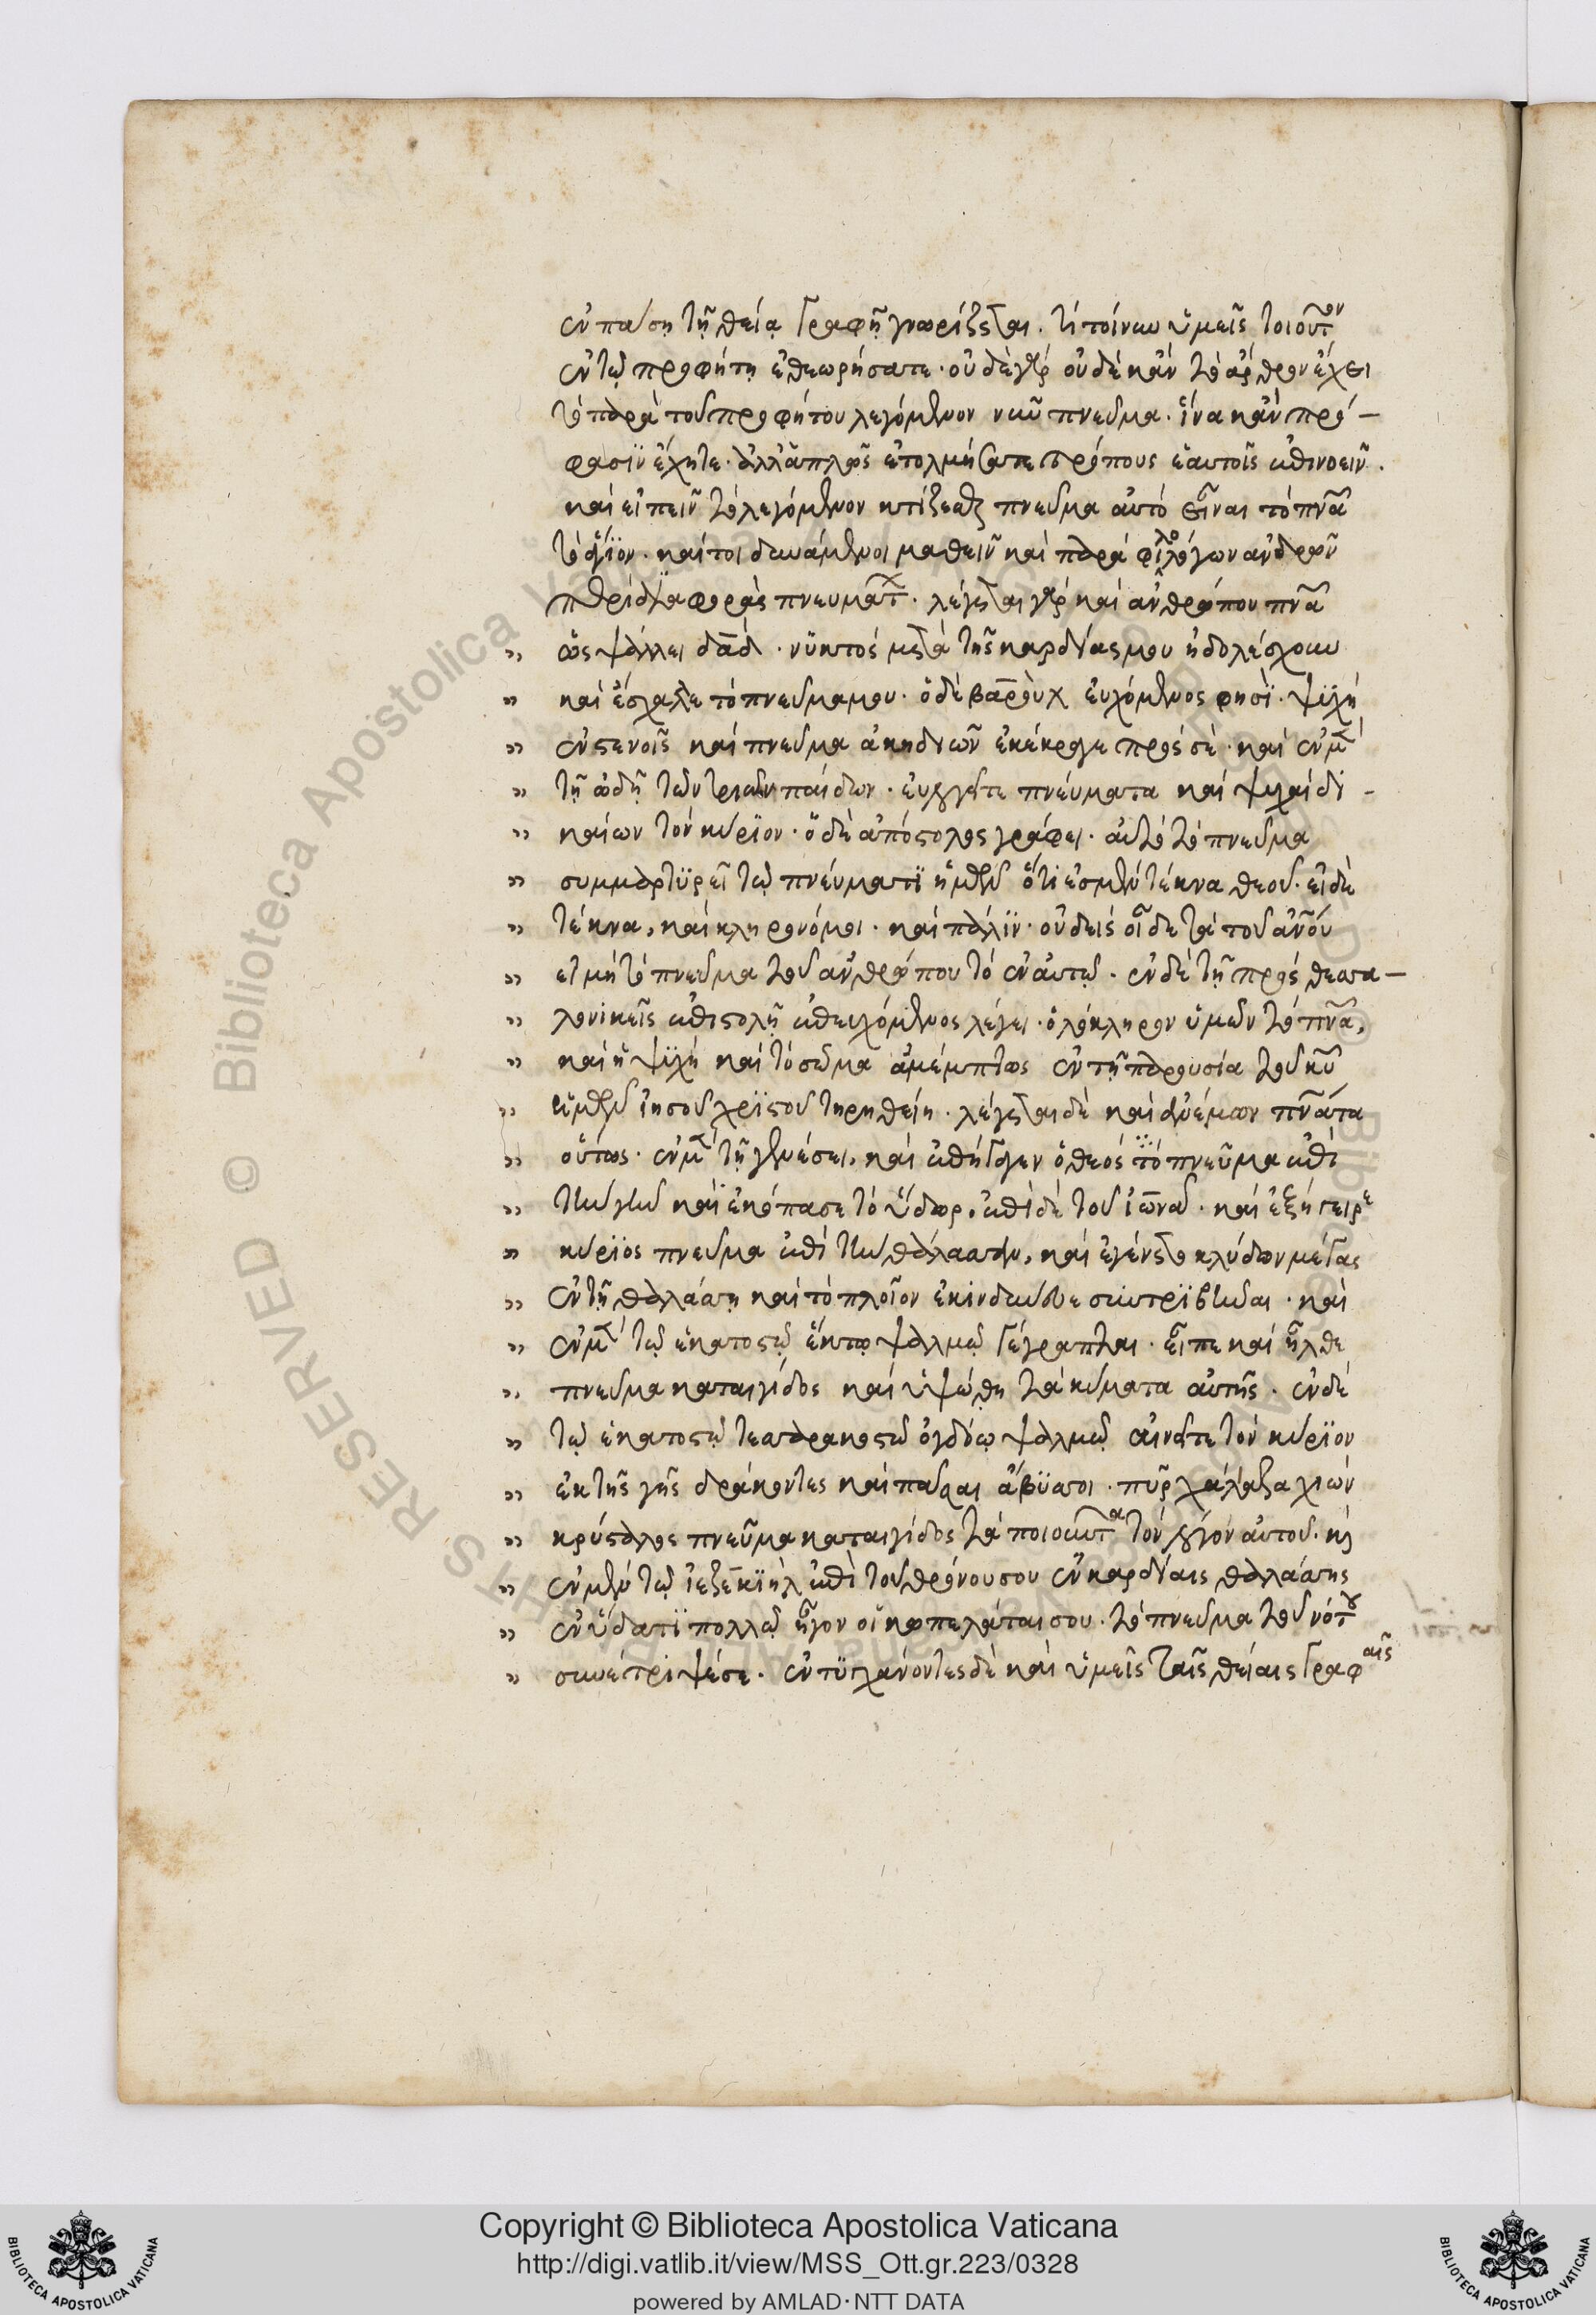 ἐν πάση τῆ θεία γραφῆ γνωρίζεται. τί τοίνυν ὑμεῖς τοιοῦτον
ἐν τῶ προφήτη ἐθεωρήσατε· οὐδὲ γὰρ οὐδὲ κἂν τὸ ἄρθρον ἔχει
τὸ παρὰ τοῦ προφήτου λεγόμενον νῦν πνεῦμα. ἵνα κἂν πρό-
φασϊν ἔχητε. ἀλλ' ἁπλῶς ἐτολμήσατε τρόπους ἑαυτοῖς ἐπινοεῖν.
καὶ εἰπεῖν τὸ λεγόμενον κτίζεσθαι πνεῦμα αὐτὸ εἶναι τὸ πνᾶ
τὸ ἅγϊον. καίτοι δυνάμενοι μαθεῖν καὶ παρὰ φιλολόγων ἀνδρῶν
περὶ διαφορᾶς πνευμάτ. λέγεται γὰρ καὶ ἀνθρώπου πνᾶ
ὡς ψάλλει δᾱδ. νϋκτὸς μετὰ τῆς καρδίας μου ἠδολέσχουν
καὶ ἔσχαλε τὸ πνεῦμα μου. ὁ δὲ βαροὺχ εὐχόμενος φησϊ. ψϋχὴ
ἐν στενοῖς καὶ πνεῦμα ἀκηδιῶν ἐκέκραγε πρὸς σέ. καὶ ἐν μ
τῆ ὠδῆ τῶν τριῶν παίδων. εὐλογεῖτε πνεύματα καὶ ψυχαὶ δι-
καίων τὸν κύρϊον. ὁ δὲ ἀπόστολος γράφει. αὐτὸ τὸ πνεῦμα
συμμαρτϋρεῖ τῶ πνεύματϊ ἡμῶν ὅτι ἐσμὲν τέκνα θεοῦ. εἰ δὲ
τέκνα, καὶ κληρονόμοι. καὶ πάλϊν. οὐδεὶς οἶδε τὰ τοῦ ἀνοῦ
εἰ μὴ τὸ πνεῦμα τοῦ ἀνθρώπου τὸ ἐν αὐτῶ. ἐν δὲ τῆ πρὸς θεσσα-
λονικεῖς ἐπιστολῆ ἐπευχόμενος λέγει. ὁλόκληρον ὑμῶν τὸ πνᾶ,
καὶ ἡ ψϋχὴ καὶ τὸ σῶμα ἀμέμπτως ἐν τῆ παρουσία τοῦ κῦ
ἡμῶν ἰησοῦ χρϊστοῦ τηρηθείη. λέγεται δὲ καὶ ἀνέμων πνᾱτα
οὕτως. ἐν μ τῆ γενέσει. καὶ ἐπήγαγεν ὁ θεὸς τὸ πνεῦμα ἐπὶ
τὴν γῆν καὶ ἐκόπασε τὸ ὕδωρ. ἐπὶ δὲ τοῦ ἰωνᾶ. καὶ ἐξήγειρε
κύρϊος πνεῦμα ἐπὶ τὴν θάλασσαν, καὶ ἐγένετο κλύδων μέγας
ἐν τῆ θαλάσση καὶ τὸ πλοῖον ἐκινδύνευε συντρϊβῆναι. καὶ
ἐν μ τῶ ἑκατοστῶ ἕκτω ψαλμῶ γέγραπται. εἶπε καὶ ἦλθε
πνεῦμα καταιγίδος καὶ ὑψώθη τὰ κύματα αὐτῆς. ἐν δὲ
τῶ ἑκατοστῶ τεσσαρακοστῶ ὀγδόω ψαλμῶ αἰνεῖτε τὸν κύρϊον
ἐκ τῆς γῆς δράκοντες καὶ πᾶσαι ἄβϋσσοι. πῦρ χάλαζα χιὼν
κρύσταλος πνεῦμα καταιγίδος τὰ ποιοῦντα τὸν λόγον αὐτοῦ. κὶ
ἐν μὲν τῶ ἰεζεκϊὴλ ἐπὶ τοῦ θρόνου σου ἐν καρδίαις θαλάσσης
ἐν ὕδατϊ πολλῶ ἦγον οἱ κωπελάται σου. τὸ πνεῦμα τοῦ νότου
συνέτριψέ σε. ἐντϋγχάνοντες δὲ καὶ ὑμεῖς ταῖς θείαις γραφαῖς
Copyright © Biblioteca Apostolica Vaticana
http://digi.vatlib.it/view/MSS_Ott.gr.223/0328
powered by AMLAD·NTT DATA